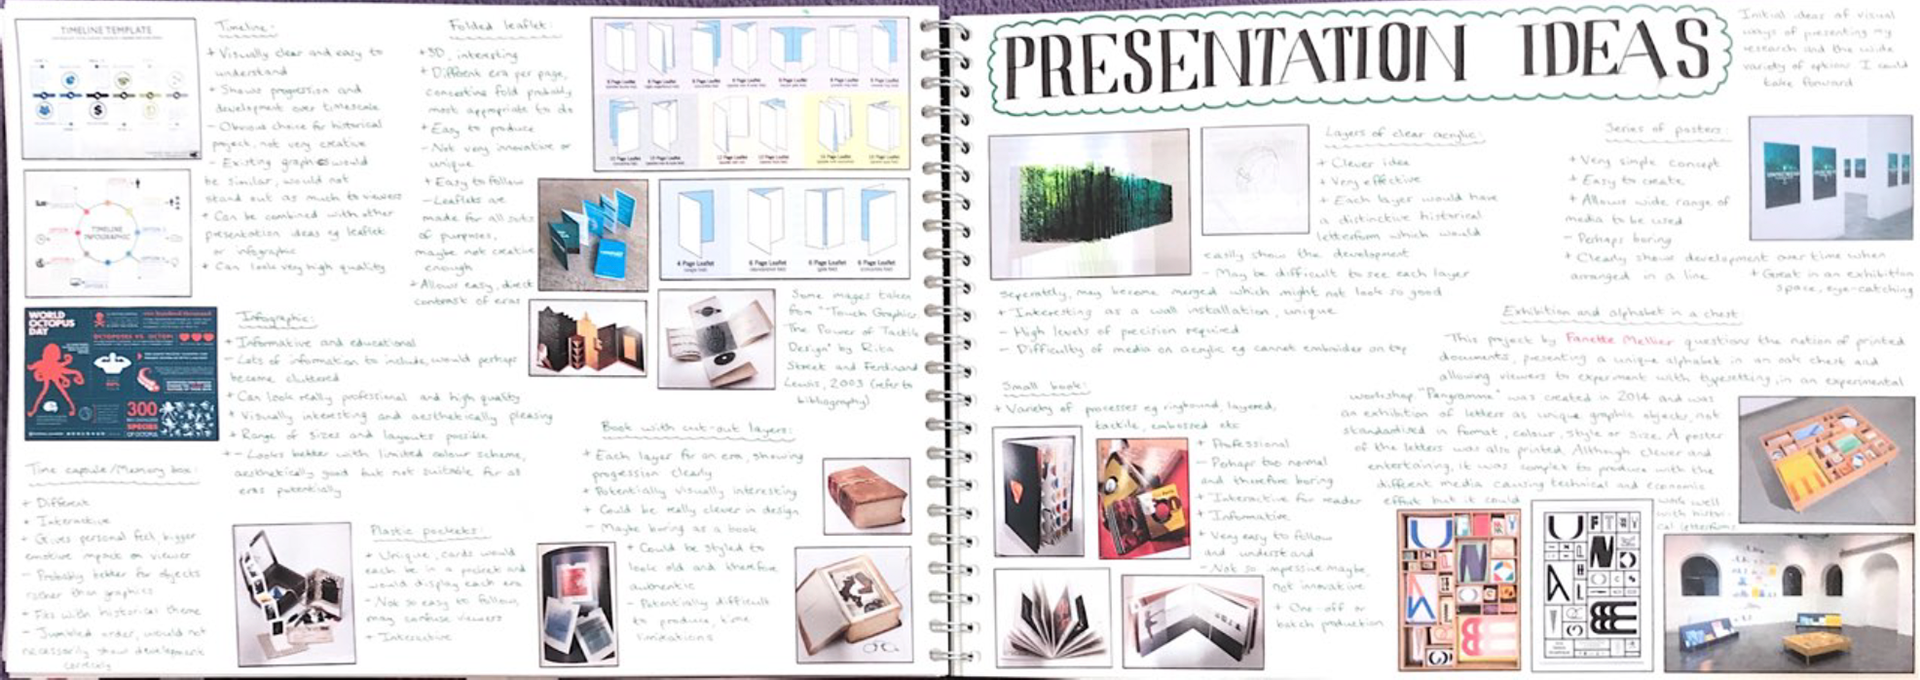 TIMELINE TEMPLATE
Timeline:
+ Visually clear and easy to
understand
+ Shows progression and
development over timescale
- Obvious choice for historical
project, not very creative
- Existing graphics would
be similar, would not
stand out as much to viewers
+ Can be combined with other
presentation ideas eg leaflet
or infographic
+ Can look very high quality
TIMELINE
INFOGRAPHIC
Folded leaflet:
+ 3D, interesting
+ Different era per page,
concertina fold probably
most appropriate to do
+ Easy to produce
- Not very innovative or
unique
+ Easy to follow
- Leaflets are
made for all sorts
of purposes,
maybe not creative
enough
+ Allows easy, direct
contrast of eras
4 Page Leaflet
6 Page Leaflet
6 Page Leaflet
6 Page Leaflet
Some images taken
from "Touch Graphics:
The Power of Tactile
Design" by Rita
Street and Ferdinand
Lewis, 2003 (refer to
bibliography)
WORLD
OCTOPUS
DAY
300
SPECIES
OF OCTOPUS
Infographic:
+ Informative and educational
- Lots of information to include, would perhaps
become cluttered
+ Can look really professional and high quality
+ Visually interesting and aesthetically pleasing
+ Range of sizes and layouts possible
+ - Looks better with limited colour scheme,
aesthetically good but not suitable for all
eras potentially
Time capsule/Memory box:
+ Different
+ Interactive
+ Gives personal feel, bigger
emotive impact on viewer
- Probably better for objects
rather than graphics
+ Fits with historical theme
- Jumbled order, would not
necessarily show development
correctly
Plastic pockets:
+ Unique, cards would
each be in a pocket and
would display each era
- Not so easy to follow,
may confuse viewers
+ Interactive
Book with cut-out layers:
+ Each layer for an era, showing
progression clearly
+ Potentially visually interesting
+ Could be really clever in design
- Maybe boring as a book
+ Could be styled to
look old and therefore
authentic
- Potentially difficult
to produce, time
limitations
PRESENTATION IDEAS
Initial ideas of visual
ways of presenting my
research and the wide
variety of options I could
take forward
Layers of clear acrylic:
+ Clever idea
+ Very effective
+ Each layer would have
a distinctive historical
letterform which would
easily show the development
- May be difficult to see each layer
seperately, may become merged which might not look so good
+ Interesting as a wall installation, unique
- High levels of precision required
- Difficulty of media on acrylic eg cannot embroider on top
Series of posters:
+ Very simple concept
+ Easy to create
+ Allows wide range of
media to be used
- Perhaps boring
+ Clearly shows development over time when
arranged in a line
+ Great in an exhibition
space, eye-catching
Small book:
+ Variety of processes eg ringbound, layered,
tactile, embossed etc
+ Professional
- Perhaps too normal
and therefore boring
+ Interactive for reader
+ Informative
+ Very easy to follow
and understand
- Not so impressive maybe,
not innovative
+ One-off or
batch production
Exhibition and alphabet in a chest
This project by Fanette Mellier questions the notion of printed
documents, presenting a unique alphabet in an oak chest and
allowing viewers to experiment with typesetting, in an experimental
workshop. "Pangramme" was created in 2014 and was
an exhibition of letters as unique graphic objects, not
standardised in format, colour, style or size. A poster
of the letters was also printed. Although clever and
entertaining, it was complex to produce with the
different media causing technical and economic
effort but it could